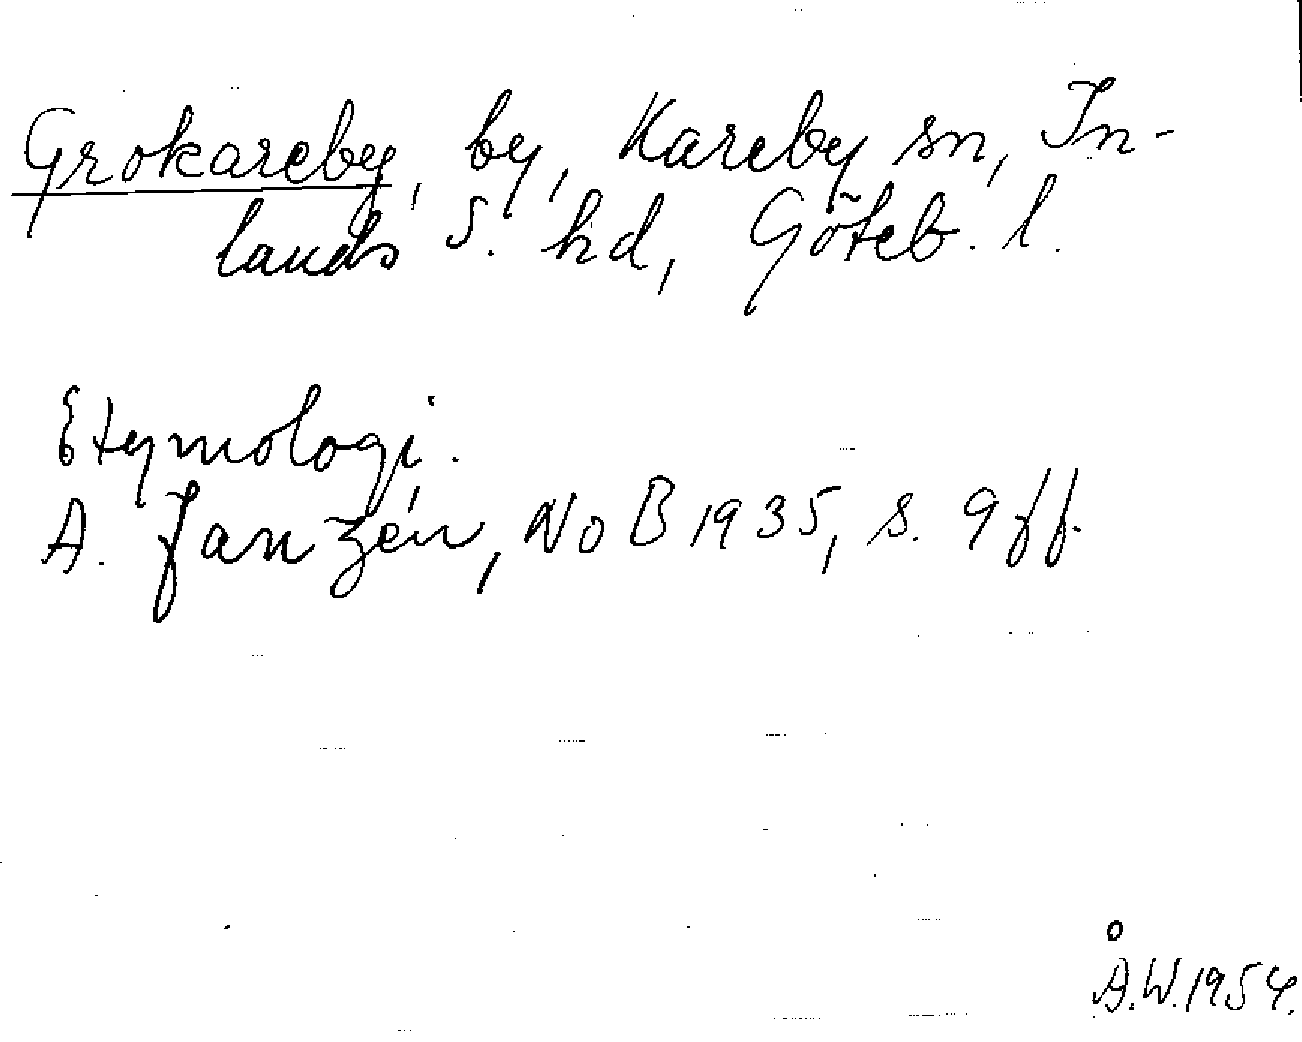 Grokareby, by, Kareby sn, In-
lands S. hd, Göteb. l.
Etymologi.
A. Janzén, NoB 1935, s. 9ff.
Å.W. 1954.